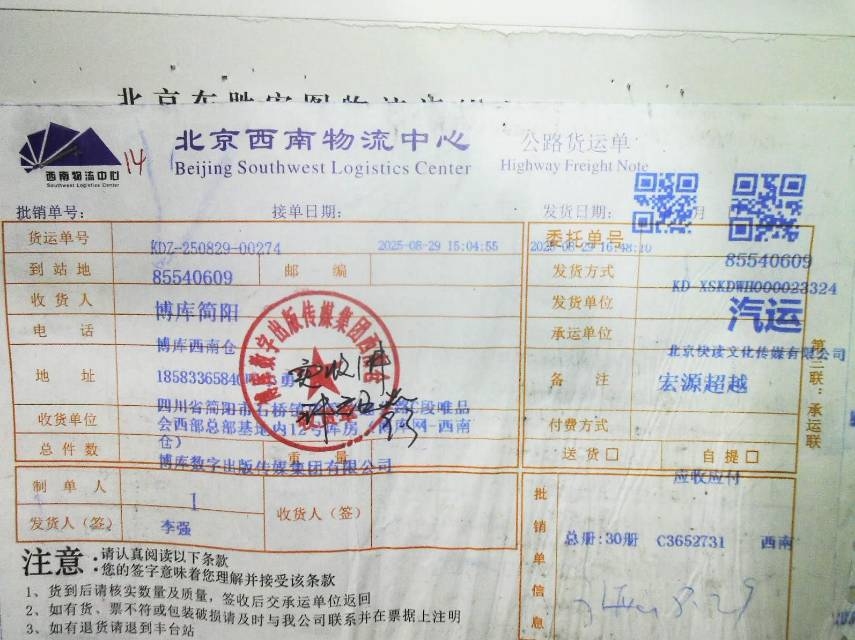 北京西南物流中心
公路货运单
14
西南物流中心
Southwest Logistics Center
Beijing Southwest Logistics Center
Highway Freight Note
批销单号：
接单日期：
发货日期：
月
货运单号
KDZ-250829-00274
2025-08-29 15:04:55
委托单号
2025-08-29 16:48:10
85540609
到站地
85540609
邮 编
发货方式
KD-XSKDWH000023324
收货人
博库简阳
发货单位
汽运
电 话
博库西南仓
承运单位
北京快读文化传媒有限公司
地 址
18583365840
勇
备 注
宏源超越
收货单位
四川省简阳市石桥镇
段唯品
会西部总部基地内12号库房（博库网-西南
仓）
付费方式
总件数
重 量
博库数字出版传媒集团有限公司
送货□
自提□
应收应付
第三联：承运联
制单人
1
发货人（签）
李强
收货人（签）
批销单信息
总册:30册 C3652731 西南
8.29
注意：
请认真阅读以下条款
您的签字意味着您理解并接受该条款
1、货到后请核实数量及质量，签收后交承运单位返回
2、如有货、票不符或包装破损请及时与我公司联系并在票据上注明
3、如有退货请退到丰台站